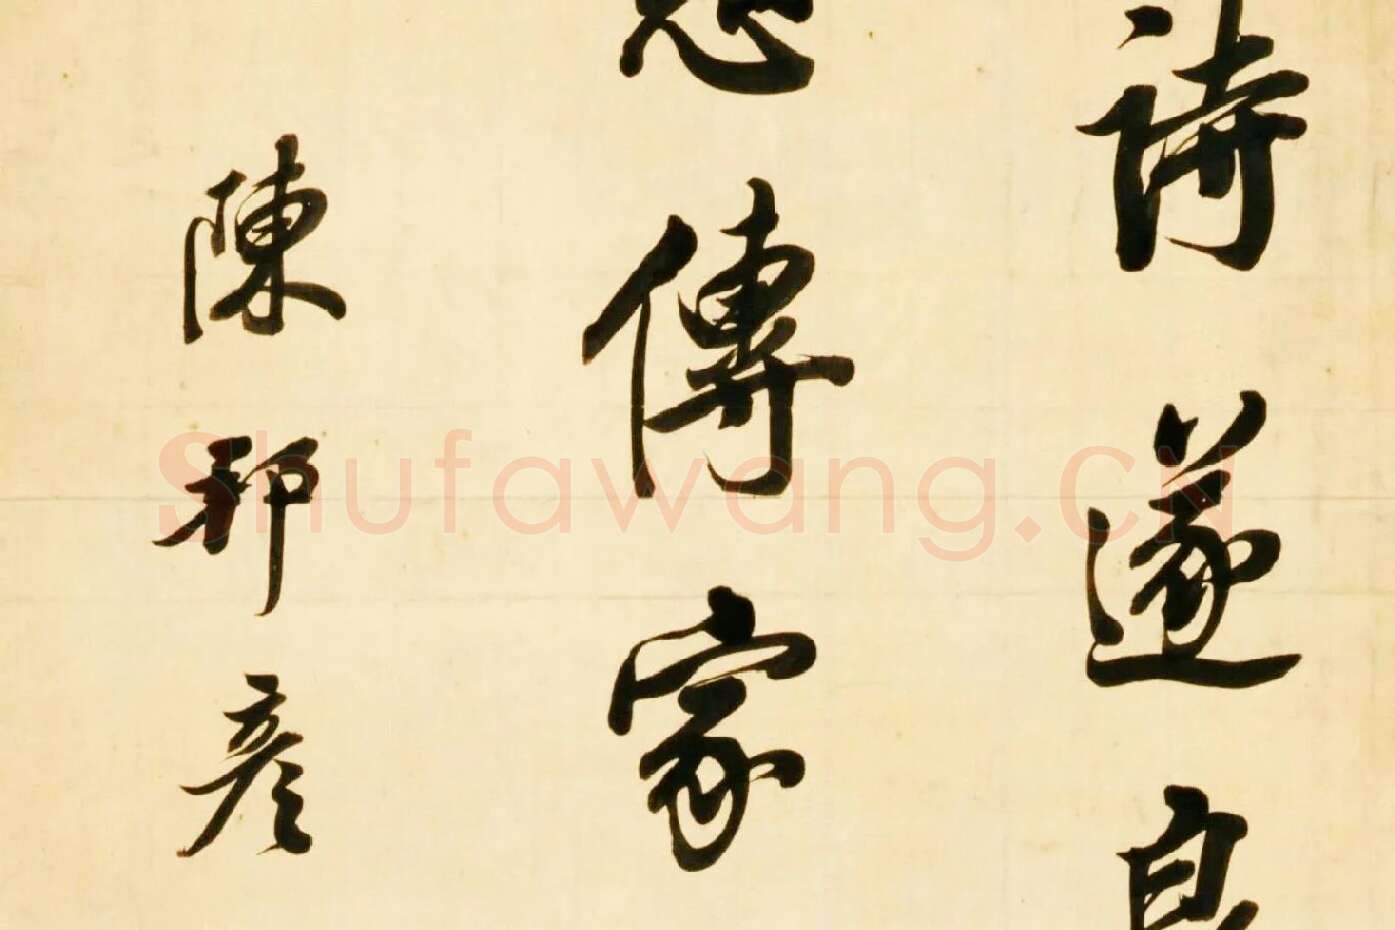 詩遂
傳家
陳邦彥
Shufawang.CN